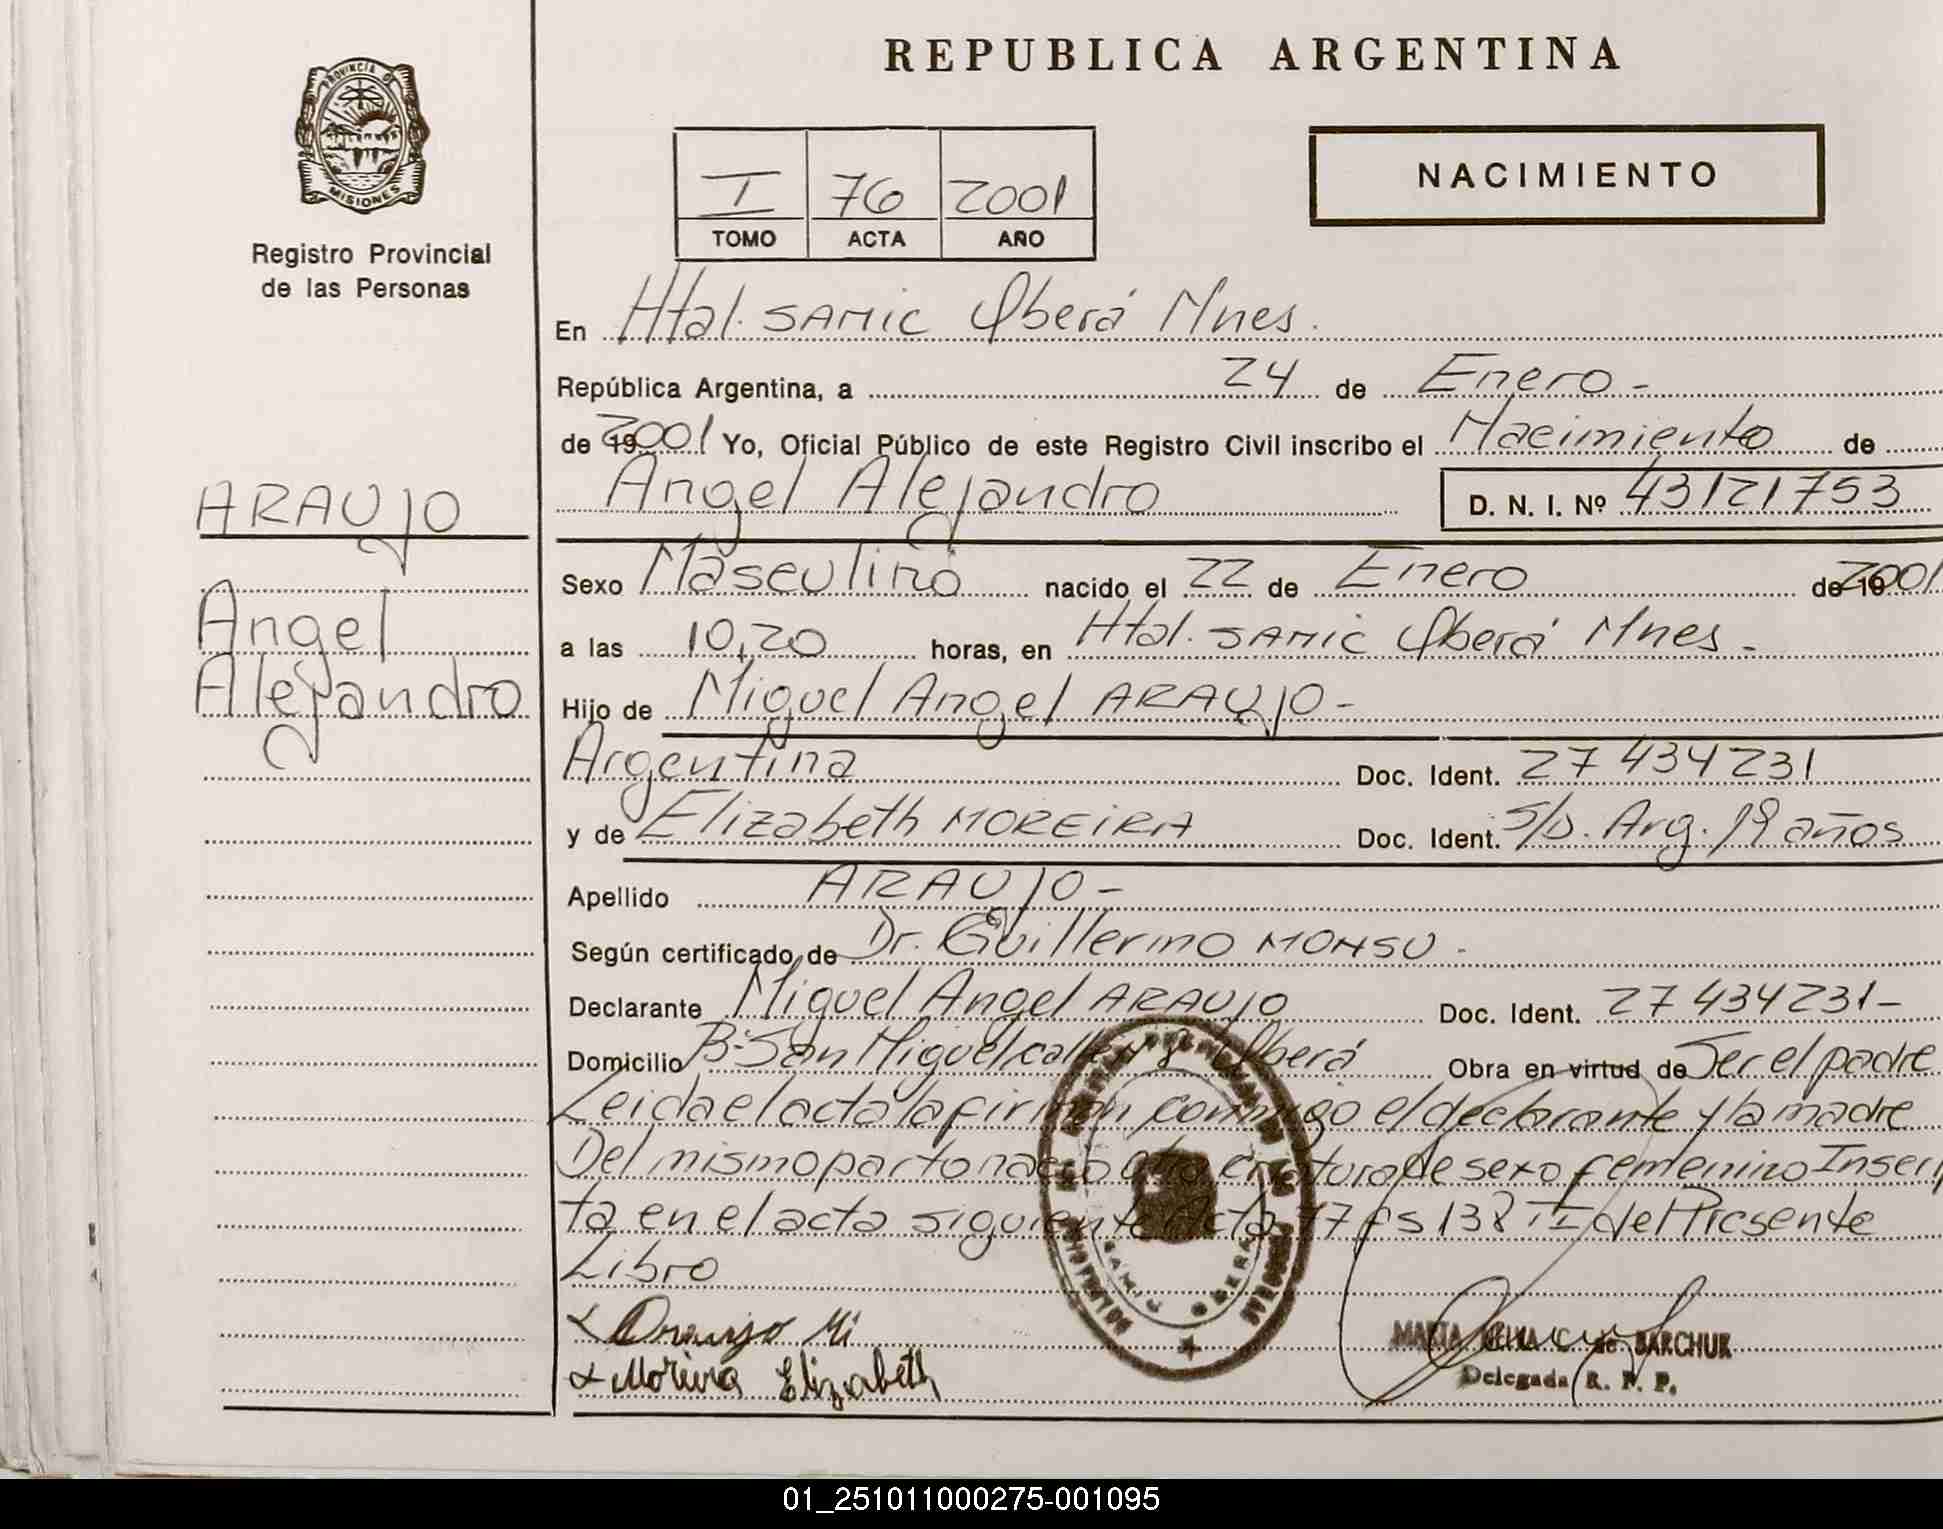 REPUBLICA ARGENTINA
PROVINCIA DE
MISIONES
Registro Provincial
de las Personas
I 76 2001
TOMO ACTA AÑO
NACIMIENTO
En Htal. SAMIC Oberá Mnes.
República Argentina, a 24 de Enero -
de 19 2001 Yo, Oficial Público de este Registro Civil inscribo el Nacimiento de
Angel Alejandro D. N. I. Nº 43121753
ARAUJO
Angel
Alejandro
Sexo Masculino nacido el 22 de Enero de 19 2001
a las 10,20 horas, en Htal. SAMIC Oberá Mnes -
Hijo de Miguel Angel ARAUJO -
Argentina Doc. Ident. 27 434 231
y de Elizabeth MOREIRA Doc. Ident. S/D. Arg. 19 años
Apellido ARAUJO -
Según certificado de Dr. Guillermo MONSU -
Declarante Miguel Angel ARAUJO Doc. Ident. 27 434 231 -
Domicilio Bº San Miguel, calle Oberá Obra en virtud de Ser el padre
Leida el acta la firman conmigo el declarante y la madre
Del mismo parto nació otra criatura de sexo femenino Inscri
ta en el acta siguiente Acta 77 Fs 138 TI del Presente
Libro
Araujo Mi
Moreira Elizabeth
SAMIC OBERA
MARTA C. de BARCHUK
Delegada R. P. P.
01_251011000275-001095